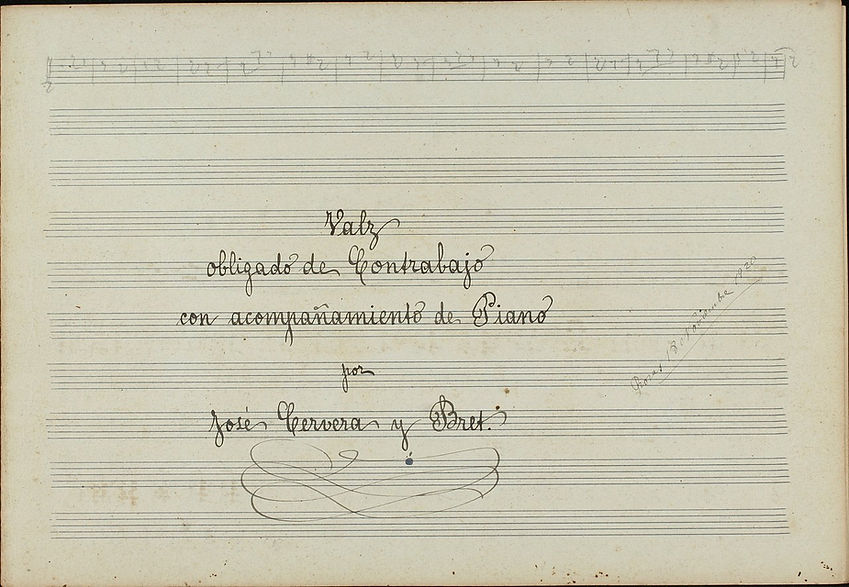 Valz
obligado de Contrabajo
con acompañamiento de Piano
por
José Cervera y Bret.
Roses 13 Noviembre 1920